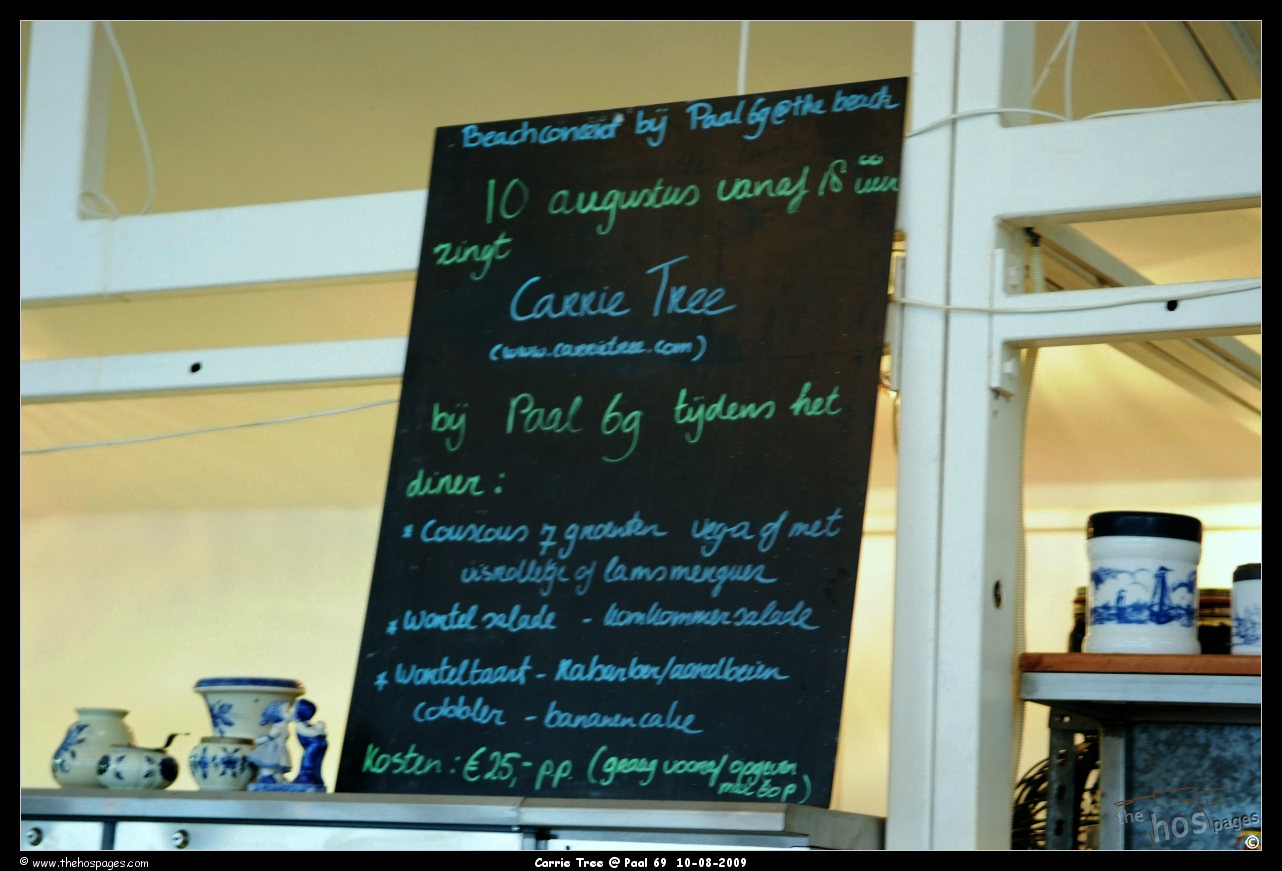 Beachconcert bij Paal 6g@the beach
10 augustus vanaf 18 üur
zingt
Carrie Tree
(www.carrietree.com)
bij Paal 6g tijdens het
diner:
* Couscous 7 groenten vega of met
visrolletje of lamsmerguez
* Wortel salade - komkommersalade
* Worteltaart - Rabarber/aardbeien
cobbler - bananencake
Kosten: €25,- p.p. (graag vooraf opgeven
max 60 p)
the hos pages
©
© www.thehospages.com
Carrie Tree @ Paal 69 10-08-2009